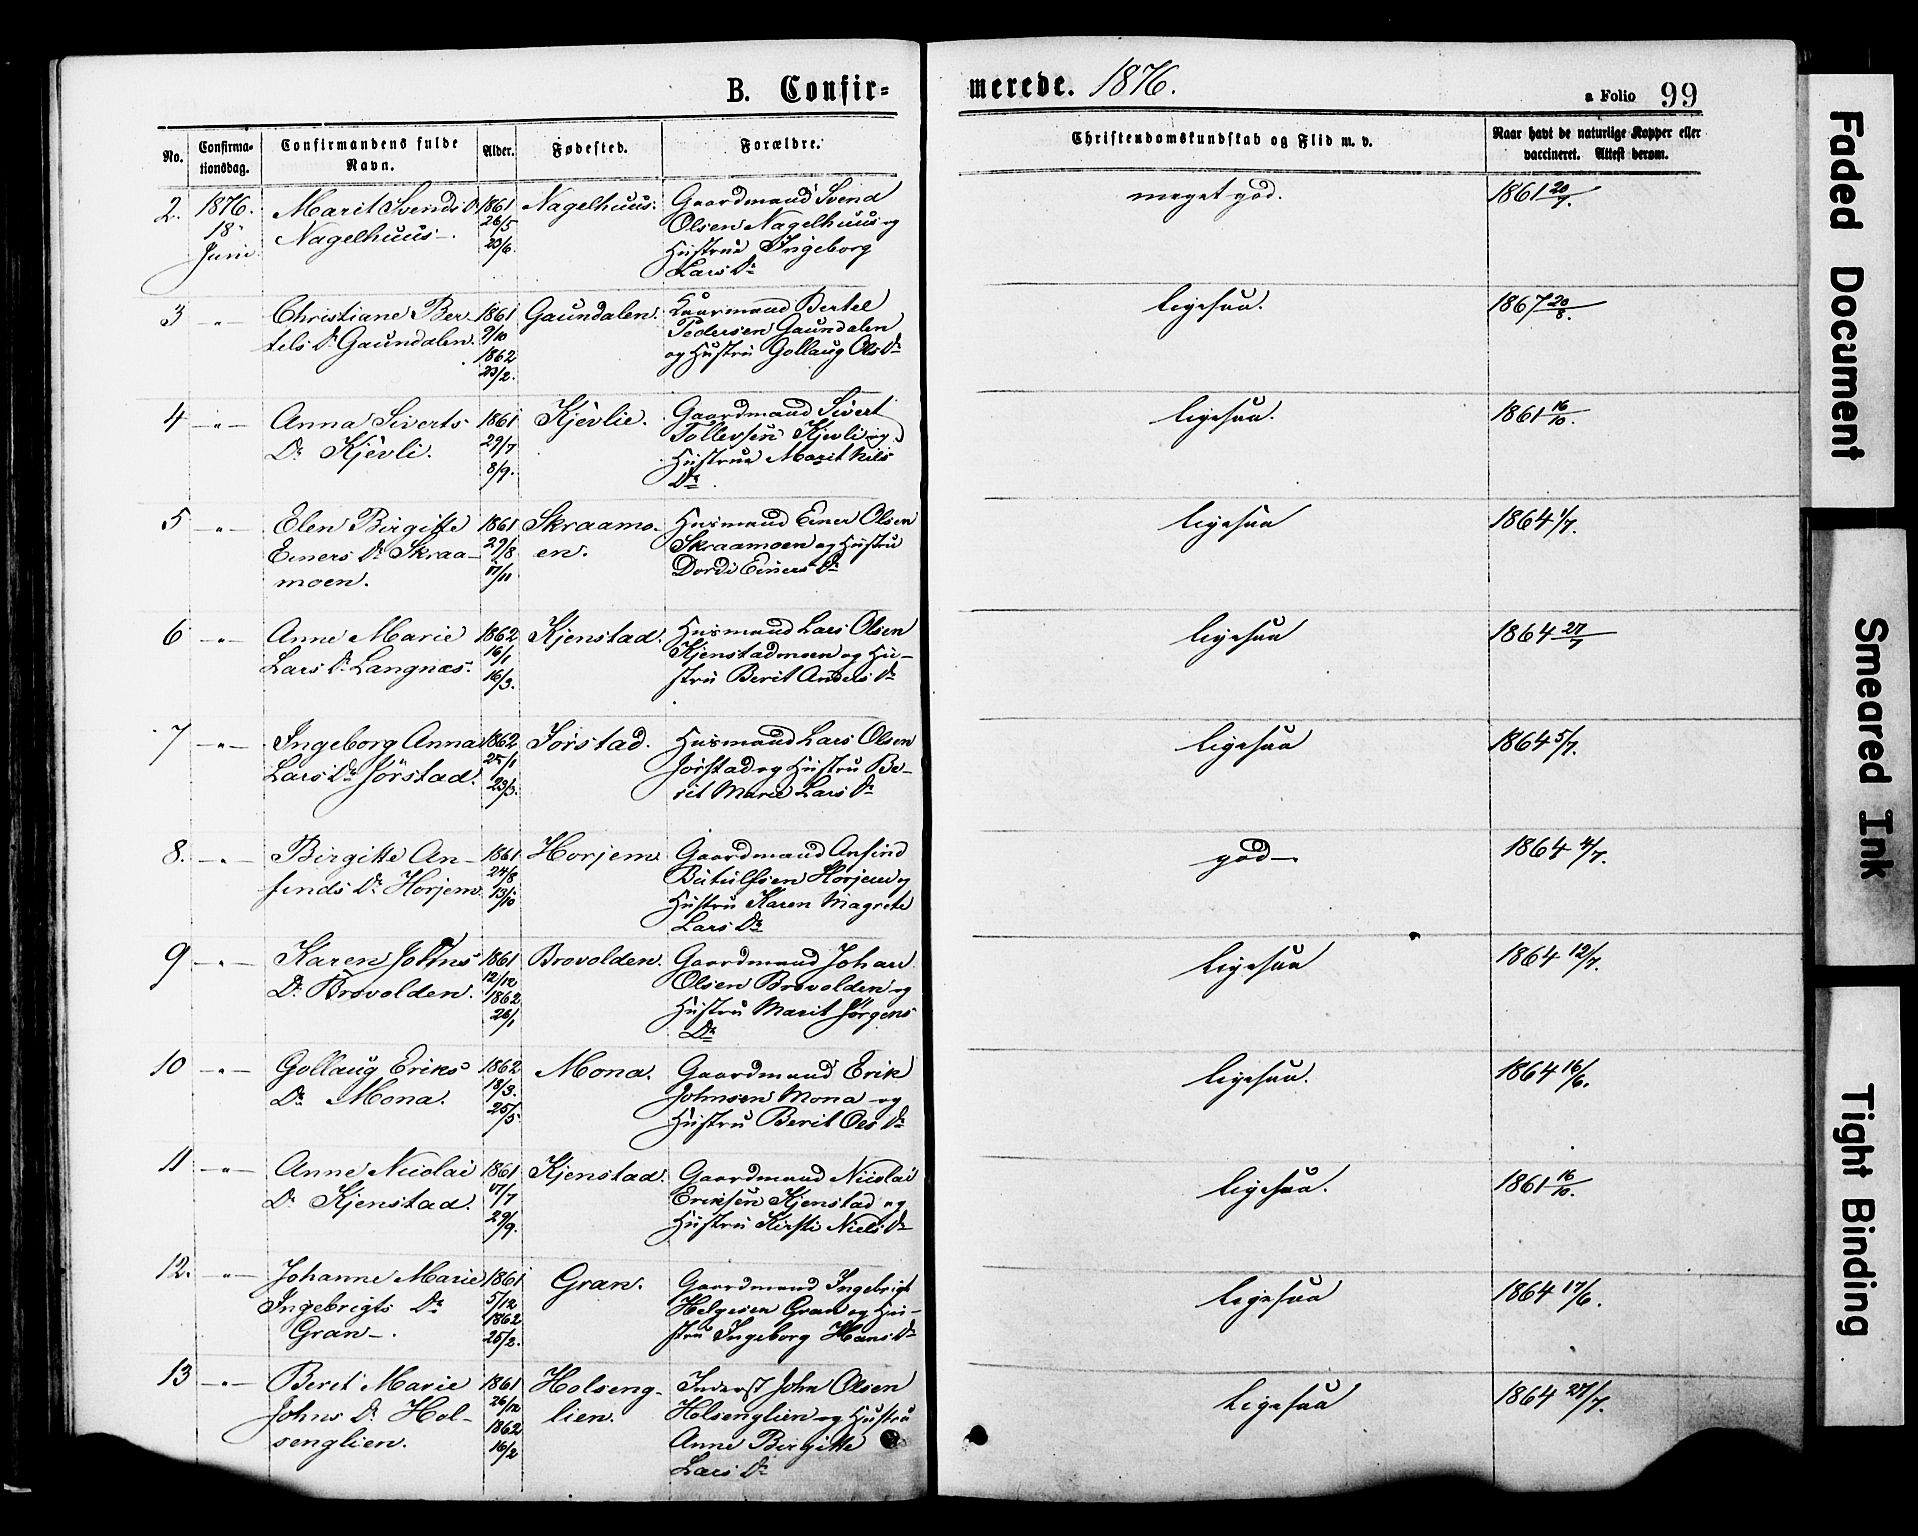 B. Confir=
merede. 1876.
a Folio 99
No.
Confirma-
tionsdag.
Confirmandens fulde
Navn.
Alder.
Fødested.
Forældre.
Christendomskundskab og Flid m. v.
Naar havt de naturlige Kopper eller
vaccineret. Attest derom.
2. 1876. 18. Juni
Marit Svends Dr
Nagelhuus.
1861
26/5
23/6.
Nagelhuus.
Gaardmand Svend
Olsen Nagelhuus og
Hustrue Ingeborg
Lars Dr
meget god.
1861 20/7.
3 -"-
Christiane Ber
tels Dr Gaundalen.
1861
9/10
1862
23/2.
Gaundalen.
Gaarmand Bertel
Pedersen Gaundalen
og Hustru Gollaug Ols Dr
ligesaa.
1867 20/8.
4 -"-
Anna Siverts
Dr Kjevli.
1861
29/7
8/9.
Kjevlie.
Gaardmand Sivert
Tollevsen Kjevli og
Hustrue Marit Nils
Dr.
ligesaa.
1861 16/10.
5 -"-
Elen Birgitte
Einers Dr Skraa-
moen.
1861
29/8
17/11
Skraamo-
en.
Husmand Einer Olsen
Skraamoen og Hustru
Dordi Einers Dr
ligesaa
1864 1/7.
6 -"-
Anne Marie
Lars Dr Langnæs.
1862
16/1
16/3.
Kjenstad.
Husmand Lars Olsen
Kjenstadmoen og Hu-
stru Berit Anders Dr
ligesaa
1864 27/7
7 -"-
Ingeborg Anna
Lars Dr Jörstad.
1862
25/1
23/3.
Jörstad.
Husmand Lars Olsen
Jörstad og Hustru Be-
rit Marie Lars Dr
ligesaa
1864 5/7.
8. -"-
Birgitte An-
finds Dr Horjem.
1861
24/8
13/10
Horjem
Gaardmand Anfind
Butulfsen Horjem og
Hustru Karen Magrete
Lars Dr
god.
1864 4/7.
9 -"-
Karen Johns
Dr Brovolden.
1861
12/12
1862
26/1
Brovolden.
Gaardmand Johan
Olsen Brovolden og
Hustru Marit Jörgens
Dr
ligesaa
1864 12/7.
10 -"-
Gollaug Eriks
Dr Mona.
1862
18/3.
25/5.
Mona.
Gaardmand Erik
Johnsen Mona og
Hustru Berit Oles Dr
ligesaa.
1864 16/6.
11 -"-
Anne Nicolai
Dr Kjenstad.
1861
17/7
29/9.
Kjenstad.
Gaardmand Nicolai
Eriksen Kjenstad og
Hustru Kirsti Niels Dr
ligesaa.
1861 16/10.
12. -"-
Johanne Marie
Ingebrigts Dr
Gran.
1861
5/12
1862
25/2.
Gran.
Gaardmand Ingebrigt
Helgesen Gran og Hu-
stru Ingeborg Hans Dr
ligesaa
1864 17/6.
13 -"-
Berit Marie
Johns Dr Hol-
senglien.
1861
26/12
1862
16/2
Holseng-
lien.
Inderst John Olsen
Holsenglien og Hustru
Anne Birgitte
Lars Dr
ligesaa
1864 27/7.
Faded Document
Smeared Ink
Tight Binding